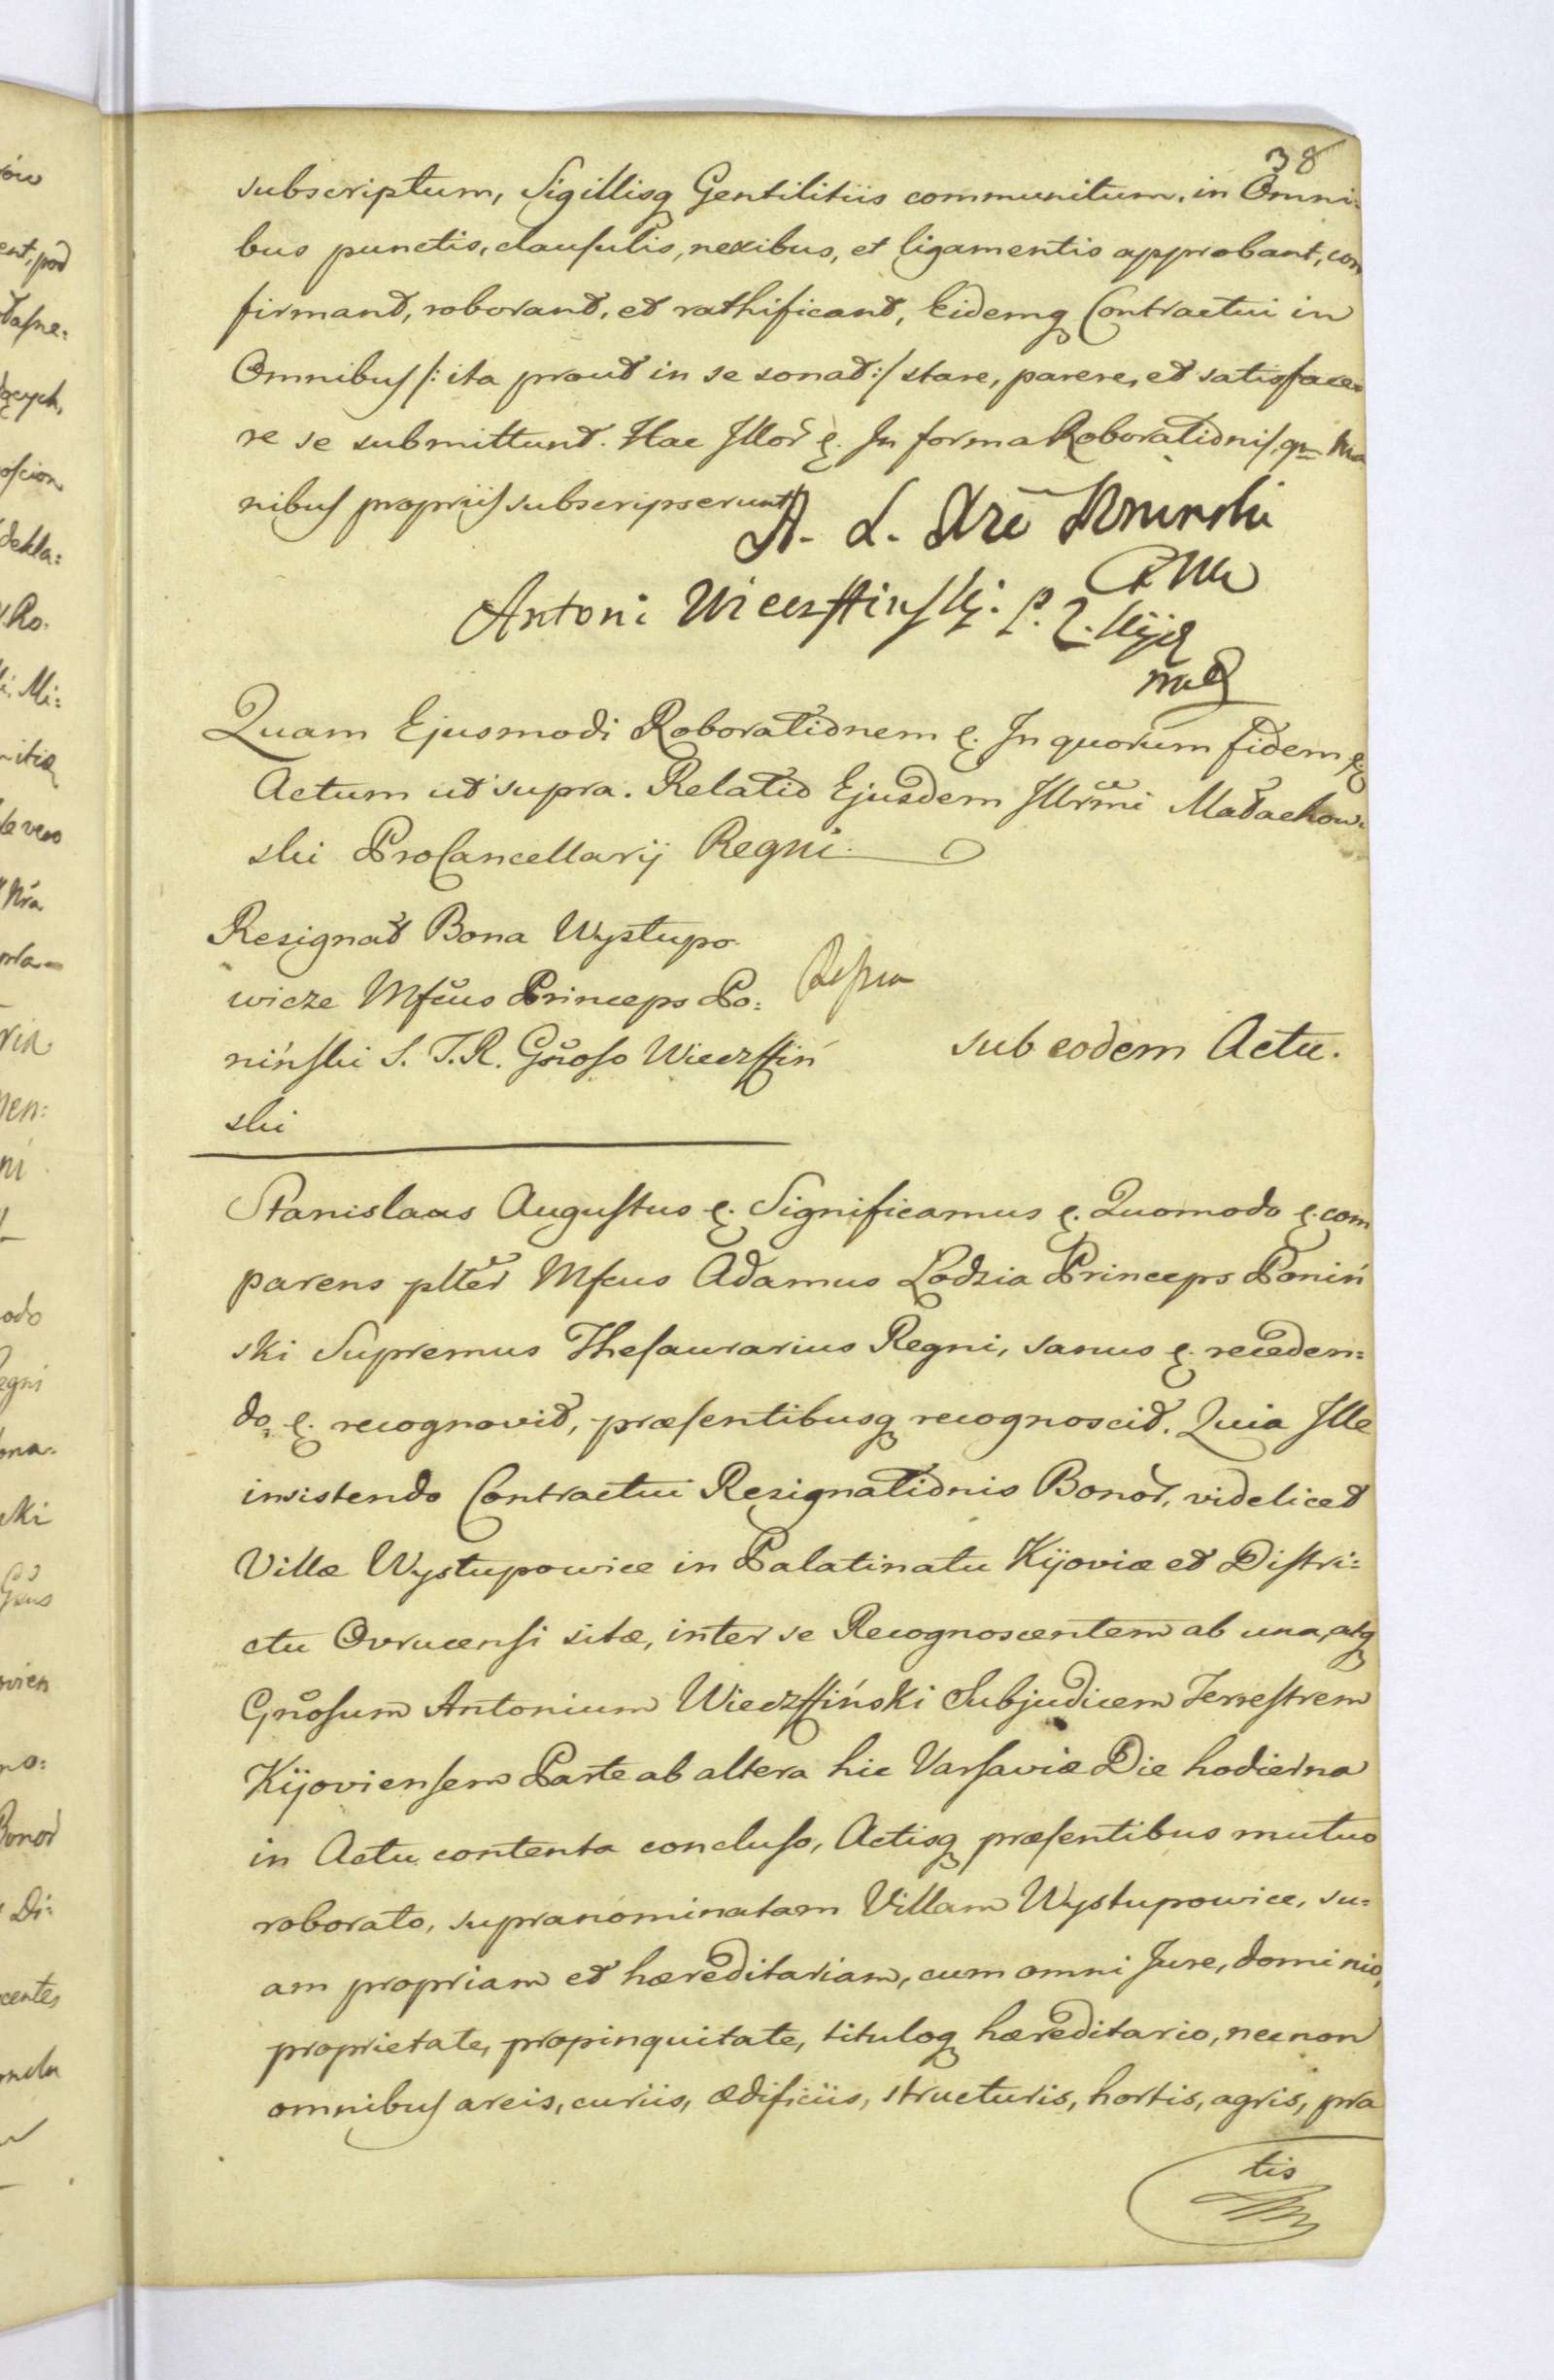 38
subscriptum, Sigillisq Gentilitiis communitum, in Omni-
bus punctis, clausulis, nexibus, et ligamentis approbant, con
firmant, roborant, et rathificant, Eidemq Contractui in
Omnibus /: ita prout in se sonat :/ stare, parere, et satisface=
re se submittunt. Hac Illor &. In forma Roborationis, qm Ma
nibus propriis subscripserunt
A. L. Poninski
Antoni Wieczffinski. P. Z. Kij
mp
Quam Ejusmodi Roborationem &. In quorum fidem &.
Actum ut supra. Relatio Ejusdem Illrmi Małachow-
ski ProCancellarij Regni.
Resignat Bona Wystupo-
wicze Mfcus Princeps Po:
niński S. T. R. Gnoso Wieczffiń
ski
sub eodem Actu.
Stanislaus Augustus &. Significamus &. Quomodo &. com
parens plter Mfcus Adamus Lodzia Princeps Poniń
ski Supremus Thesaurarius Regni, sanus &. receden=
do, &. recognovit, præsentibusq recognoscit. Quia Ille
insistendo Contractui Resignationis Bonor, videlicet
Villæ Wystupowice in Palatinatu Kijoviæ et Distri=
ctu Ovrucensi sitæ, inter se Recognoscentem ab una, atq
Gnosum Antonium Wieczffiński Subjudicem Terrestrem
Kijoviensem Parte ab altera hic Varsaviæ Die hodierna
in Actu contenta concluso, Actisq præsentibus mutuo
roborato, supranominatam Villam Wystupowice, su=
am propriam et hæreditariam, cum omni Jure, dominio,
proprietate, propinquitate, tituloq hæreditario, necnon
omnibus areis, curiis, ædificiis, structuris, hortis, agris, pra
tis